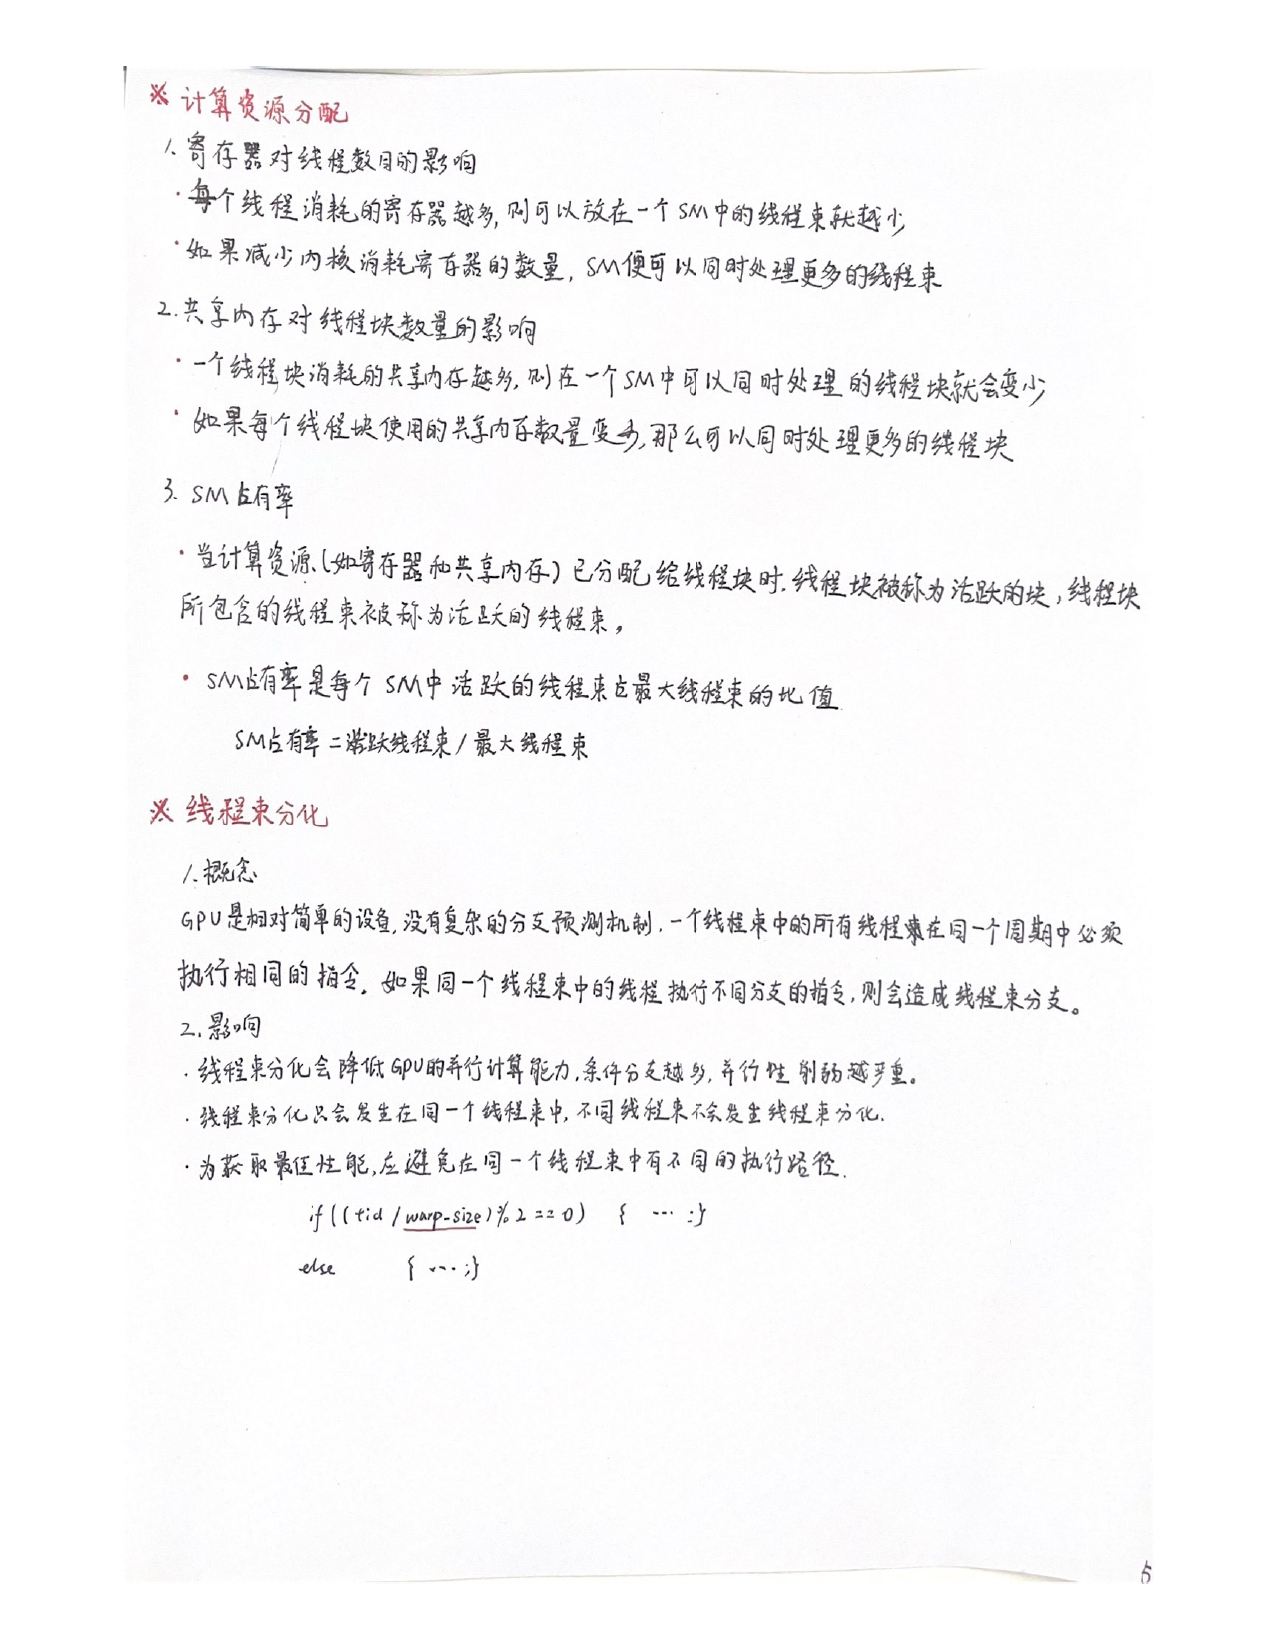 ※ 计算资源分配
1. 寄存器对线程数目的影响
· 每个线程消耗的寄存器越多,则可以放在一个SM中的线程束就越少
· 如果减少内核消耗寄存器的数量,SM便可以同时处理更多的线程束
2. 共享内存对线程块数量的影响
· 一个线程块消耗的共享内存越多,则在一个SM中可以同时处理的线程块就会变少
· 如果每个线程块使用的共享内存数量变少,那么可以同时处理更多的线程块
3. SM占有率
· 当计算资源(如寄存器和共享内存)已分配给线程块时.线程块被称为活跃的块,线程块
所包含的线程束被称为活跃的线程束。
· SM占有率是每个SM中活跃的线程束占最大线程束的比值.
SM占有率=活跃线程束/最大线程束
※ 线程束分化
1. 概念
GPU是相对简单的设备,没有复杂的分支预测机制.一个线程束中的所有线程在同一个周期中必须
执行相同的指令。如果同一个线程束中的线程执行不同分支的指令,则会造成线程束分支。
2. 影响
· 线程束分化会降低GPU的并行计算能力.条件分支越多,并行性削弱越严重。
· 线程束分化只会发生在同一个线程束中,不同线程束不会发生线程束分化.
· 为获取最佳性能,应避免在同一个线程束中有不同的执行路径.
if((tid/warp-size)%2==0) { ...;}
else { ...;}
5